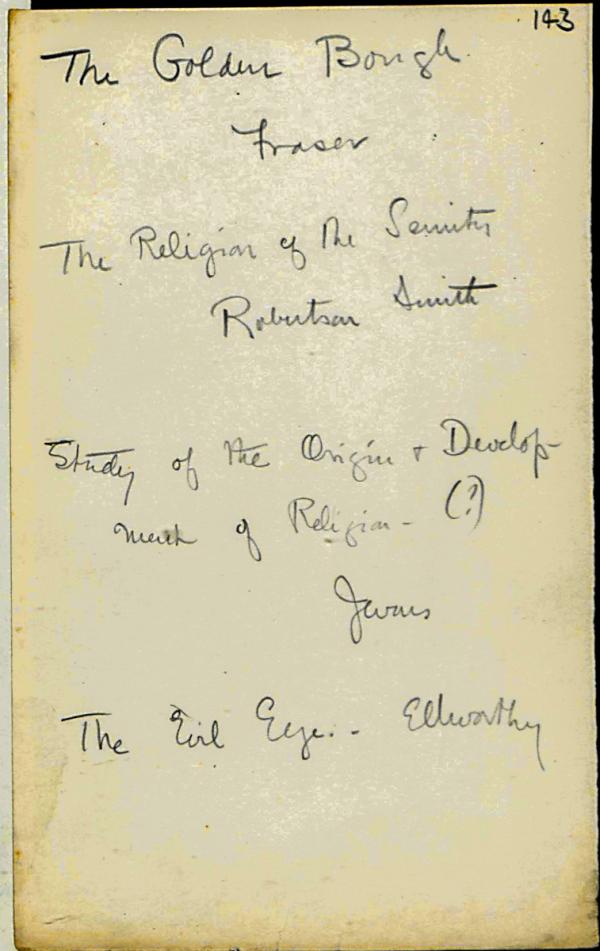 143
The Golden Bough
Fraser
The Religion of the Semites
Robertson Smith
Study of the Origin + Develop-
ment of Religion - (?)
Jevons
The Evil Eye. - Ellworthy